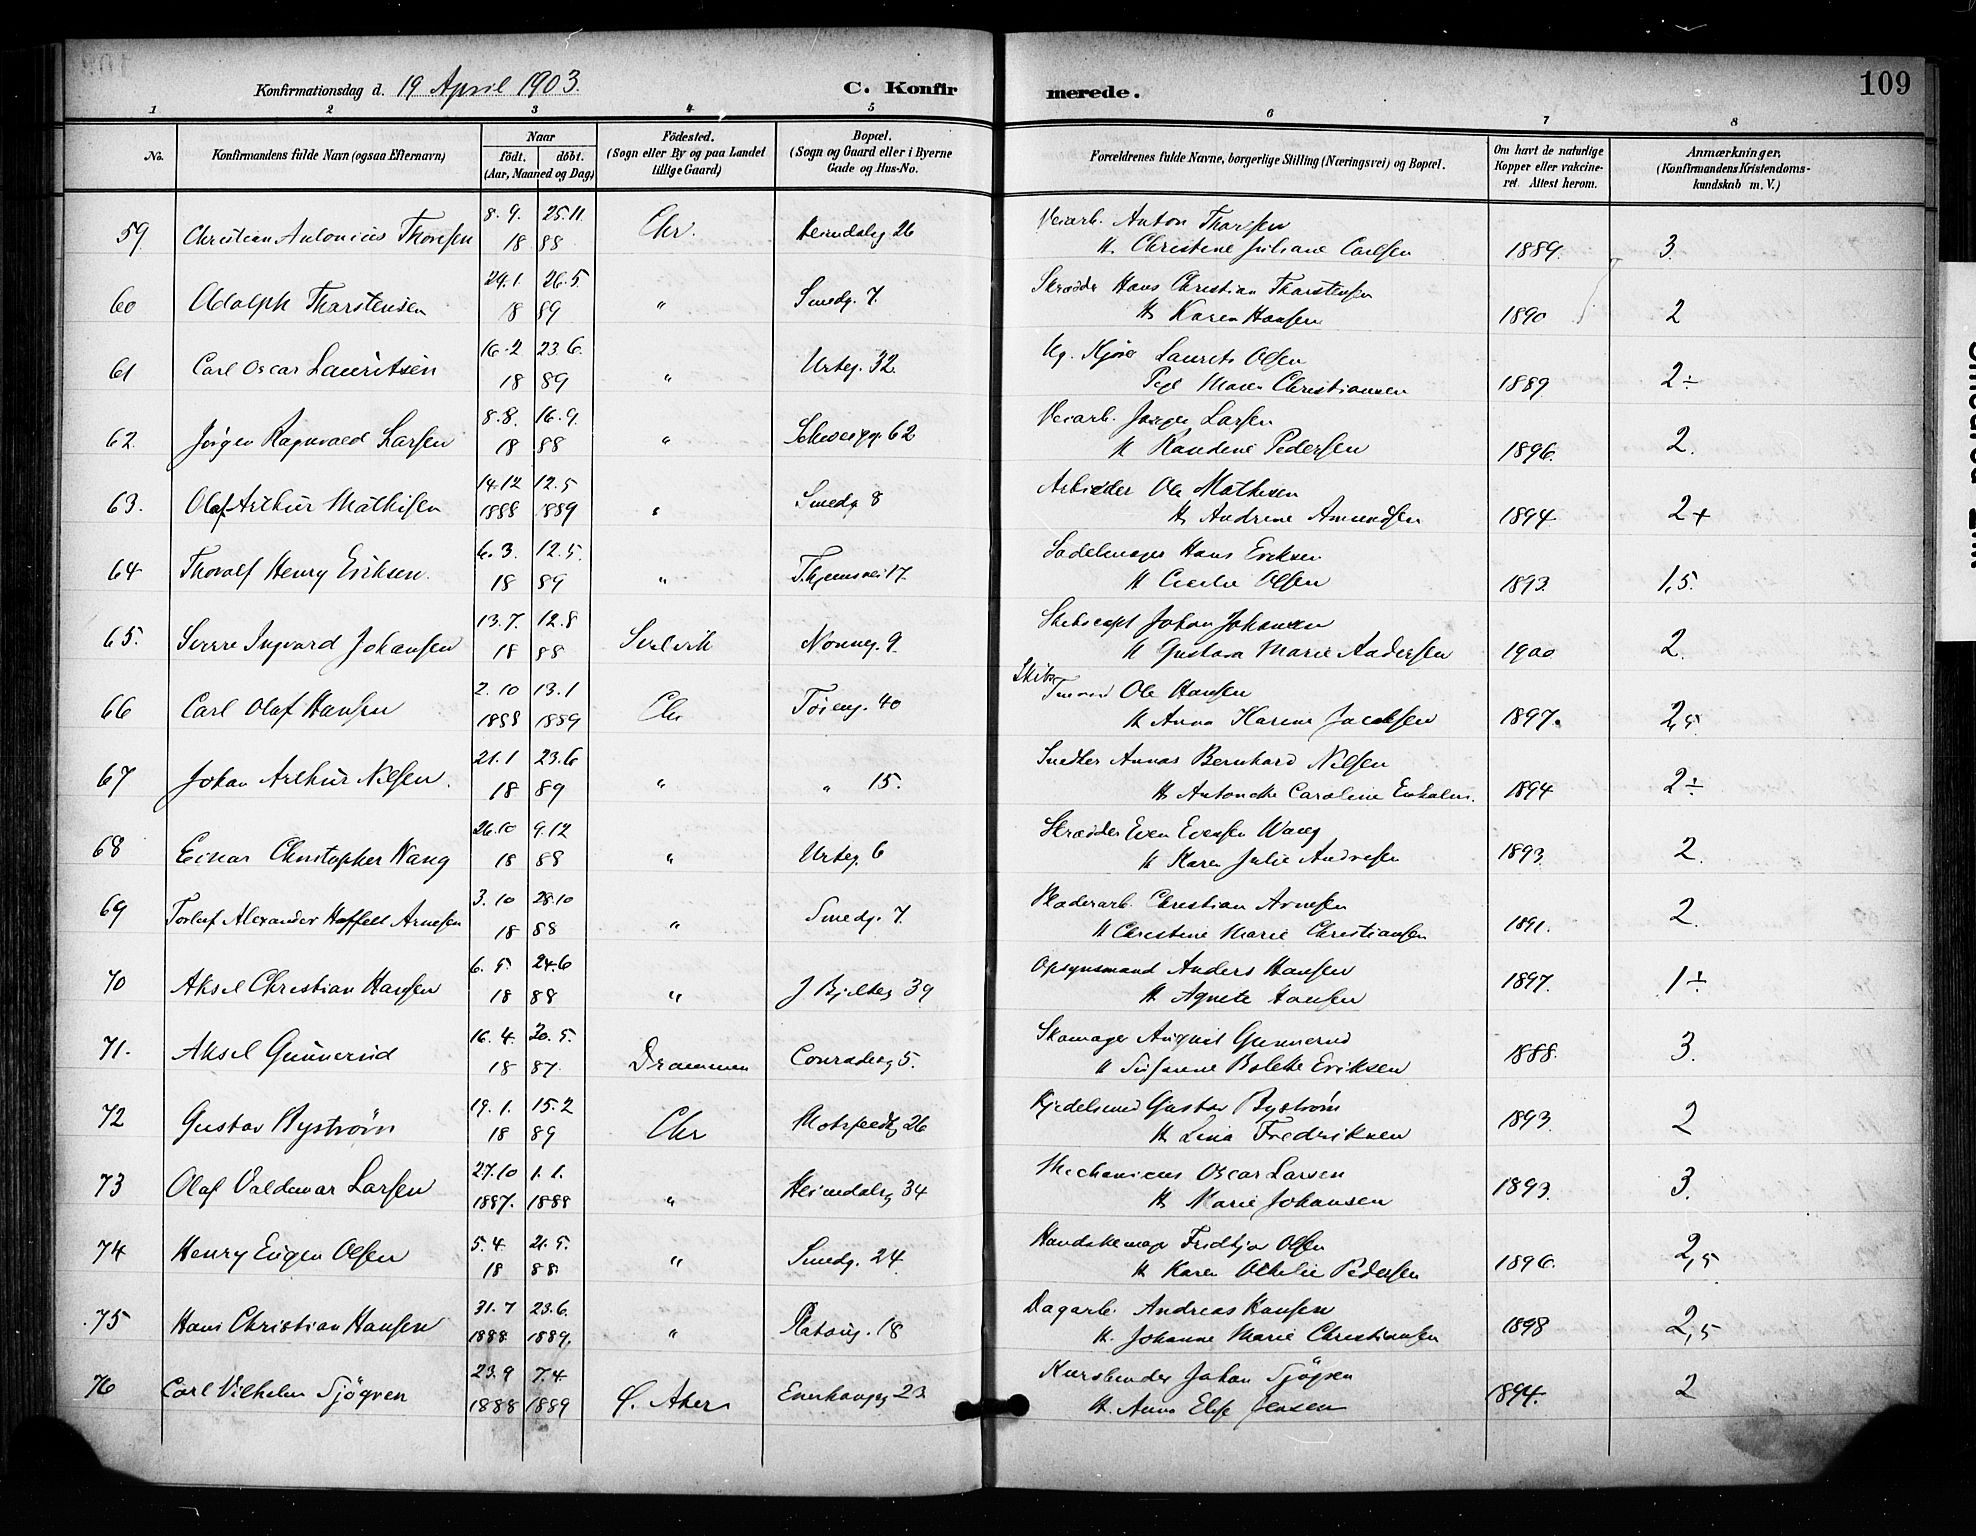 109
Konfirmationsdag d. 19 April 1903.
C. Konfirmerede.
1 2 3 4 5 6 7 8
No. Konfirmandens fulde Navn (ogsaa Efternavn) Naar født. døbt. (Aar, Maaned og Dag) Fødested. (Sogn eller By og paa Landet tillige Gaard) Bopæl. (Sogn og Gaard eller i Byerne Gade og Hus-No. Forældrenes fulde Navne, borgerlige Stilling (Næringsvei) og Bopæl. Om havt de naturlige Kopper eller vakcineret. Attest herom. Anmærkninger. (Konfirmandens Kristendomskundskab m. V.)
59 Christian Antonius Thoresen 8.9. 25.11 18 88 Chr. Heimdalsg 26 Veiarb. Anton Thorsen
H. Christine Juliane Carlsen 1889. 3.
60 Adolph Thorstensen 29.1. 26.5. 18 89 " Smedg. 7. Skrædder Hans Christian Thorstensen
H. Karen Hansen 1890 2
61 Carl Oscar Lauritsen 16.2 23.6. 18 89 " Urteg. 32. Ug. Kjører Laurits Olsen
Pige Maren Christiansen 1889. 2÷
62. Jørgen Ragnvald Larsen 8.8. 16.9. 18 88 " 62 Veiarb. Jørgen Larsen
H Randine Pedersen 1896. 2.
63. Olaf Arthur Mathisen 14.12 12.5 1888 889 " Smedg 8 Arbeider Ole Mathisen
H. Andrine Amundsen 1894 2+
64 Thoralf Henry Eriksen. 6.3. 12.5. 18 89 " 17. Sadelmager Hans Eriksen
H Cecilie Olsen 1893. 1,5.
65. Sverre Ingvard Johansen 13.7. 12.8 18 88 Svelvik Nonneg. 9. Skibscapt Johan Johansen
H Gustava Marie Andersen 1900 2.
66 Carl Olaf Hansen 2.10 13.1 1888 1889 Chr Tøieng. 40 Skibs Tmrmd Ole Hansen
H Anna Karine Jacobsen 1897. 2,5.
67 Johan Arthur Nilsen. 21.1 23.6 18 89 " " 15. Snedker Bernhard Nilsen
H. Caroline 1894 2÷
68 Einar Christopher Wang 26.10 9.12 18 88 " Urteg. 6 Skrædder Even Evensen Wang
H Karen Julie Andresen 1893. 2.
69 Torluf Alexander Arnesen 3.10 28.10 18 88 " Smedg. 7. Christian Arnesen
H Christine Marie Christiansen 1891. 2.
70 Aksel Christian Hansen 6.5. 24.6 18 88 " J Bjelkeg 39 Opsynsmand Anders Hansen
H Agnete Hansen 1897. 1÷
71. Aksel Gunnerud 16.4. 30.5. 18 87. Drammen Conradieg 5. Skomager August Gunnerud
H Susanne Bolette Eriksen 1888. 3.
72 Gustav Nystrøm 19.1. 15.2 18 89 Chr Motzfeldtg 26 Kjedelsmed Gustav Nystrøm
H Lina Fredriksen 1893. 2
73 Olaf Valdemar Larsen 27.10 1.1. 1887. 1888 " Heimdalsg 34 Mechanicus Oscar Larsen
H. Marie Johansen 1893. 3.
74 Henry Eugen Olsen 5.4. 21.5. 18 88 " Smedg. 24 Handskemag Fridtjo Olsen
H Karen Othelie Pedersen 1896. 2,5
75 Hans Christian Hansen 31.7 23.6. 1888. 1889. " Platoug. 18 Dagarb. Andreas Hansen
H. Johanne Marie Christiansen 1898 2,5
76 Carl Vilhelm Sjögren 23.9 7.4 1888 1889 Ø. Aker Enerhaugg 23 Kurvbinder Johan Sjögren
H. Anna Elise Jensen 1894. 2